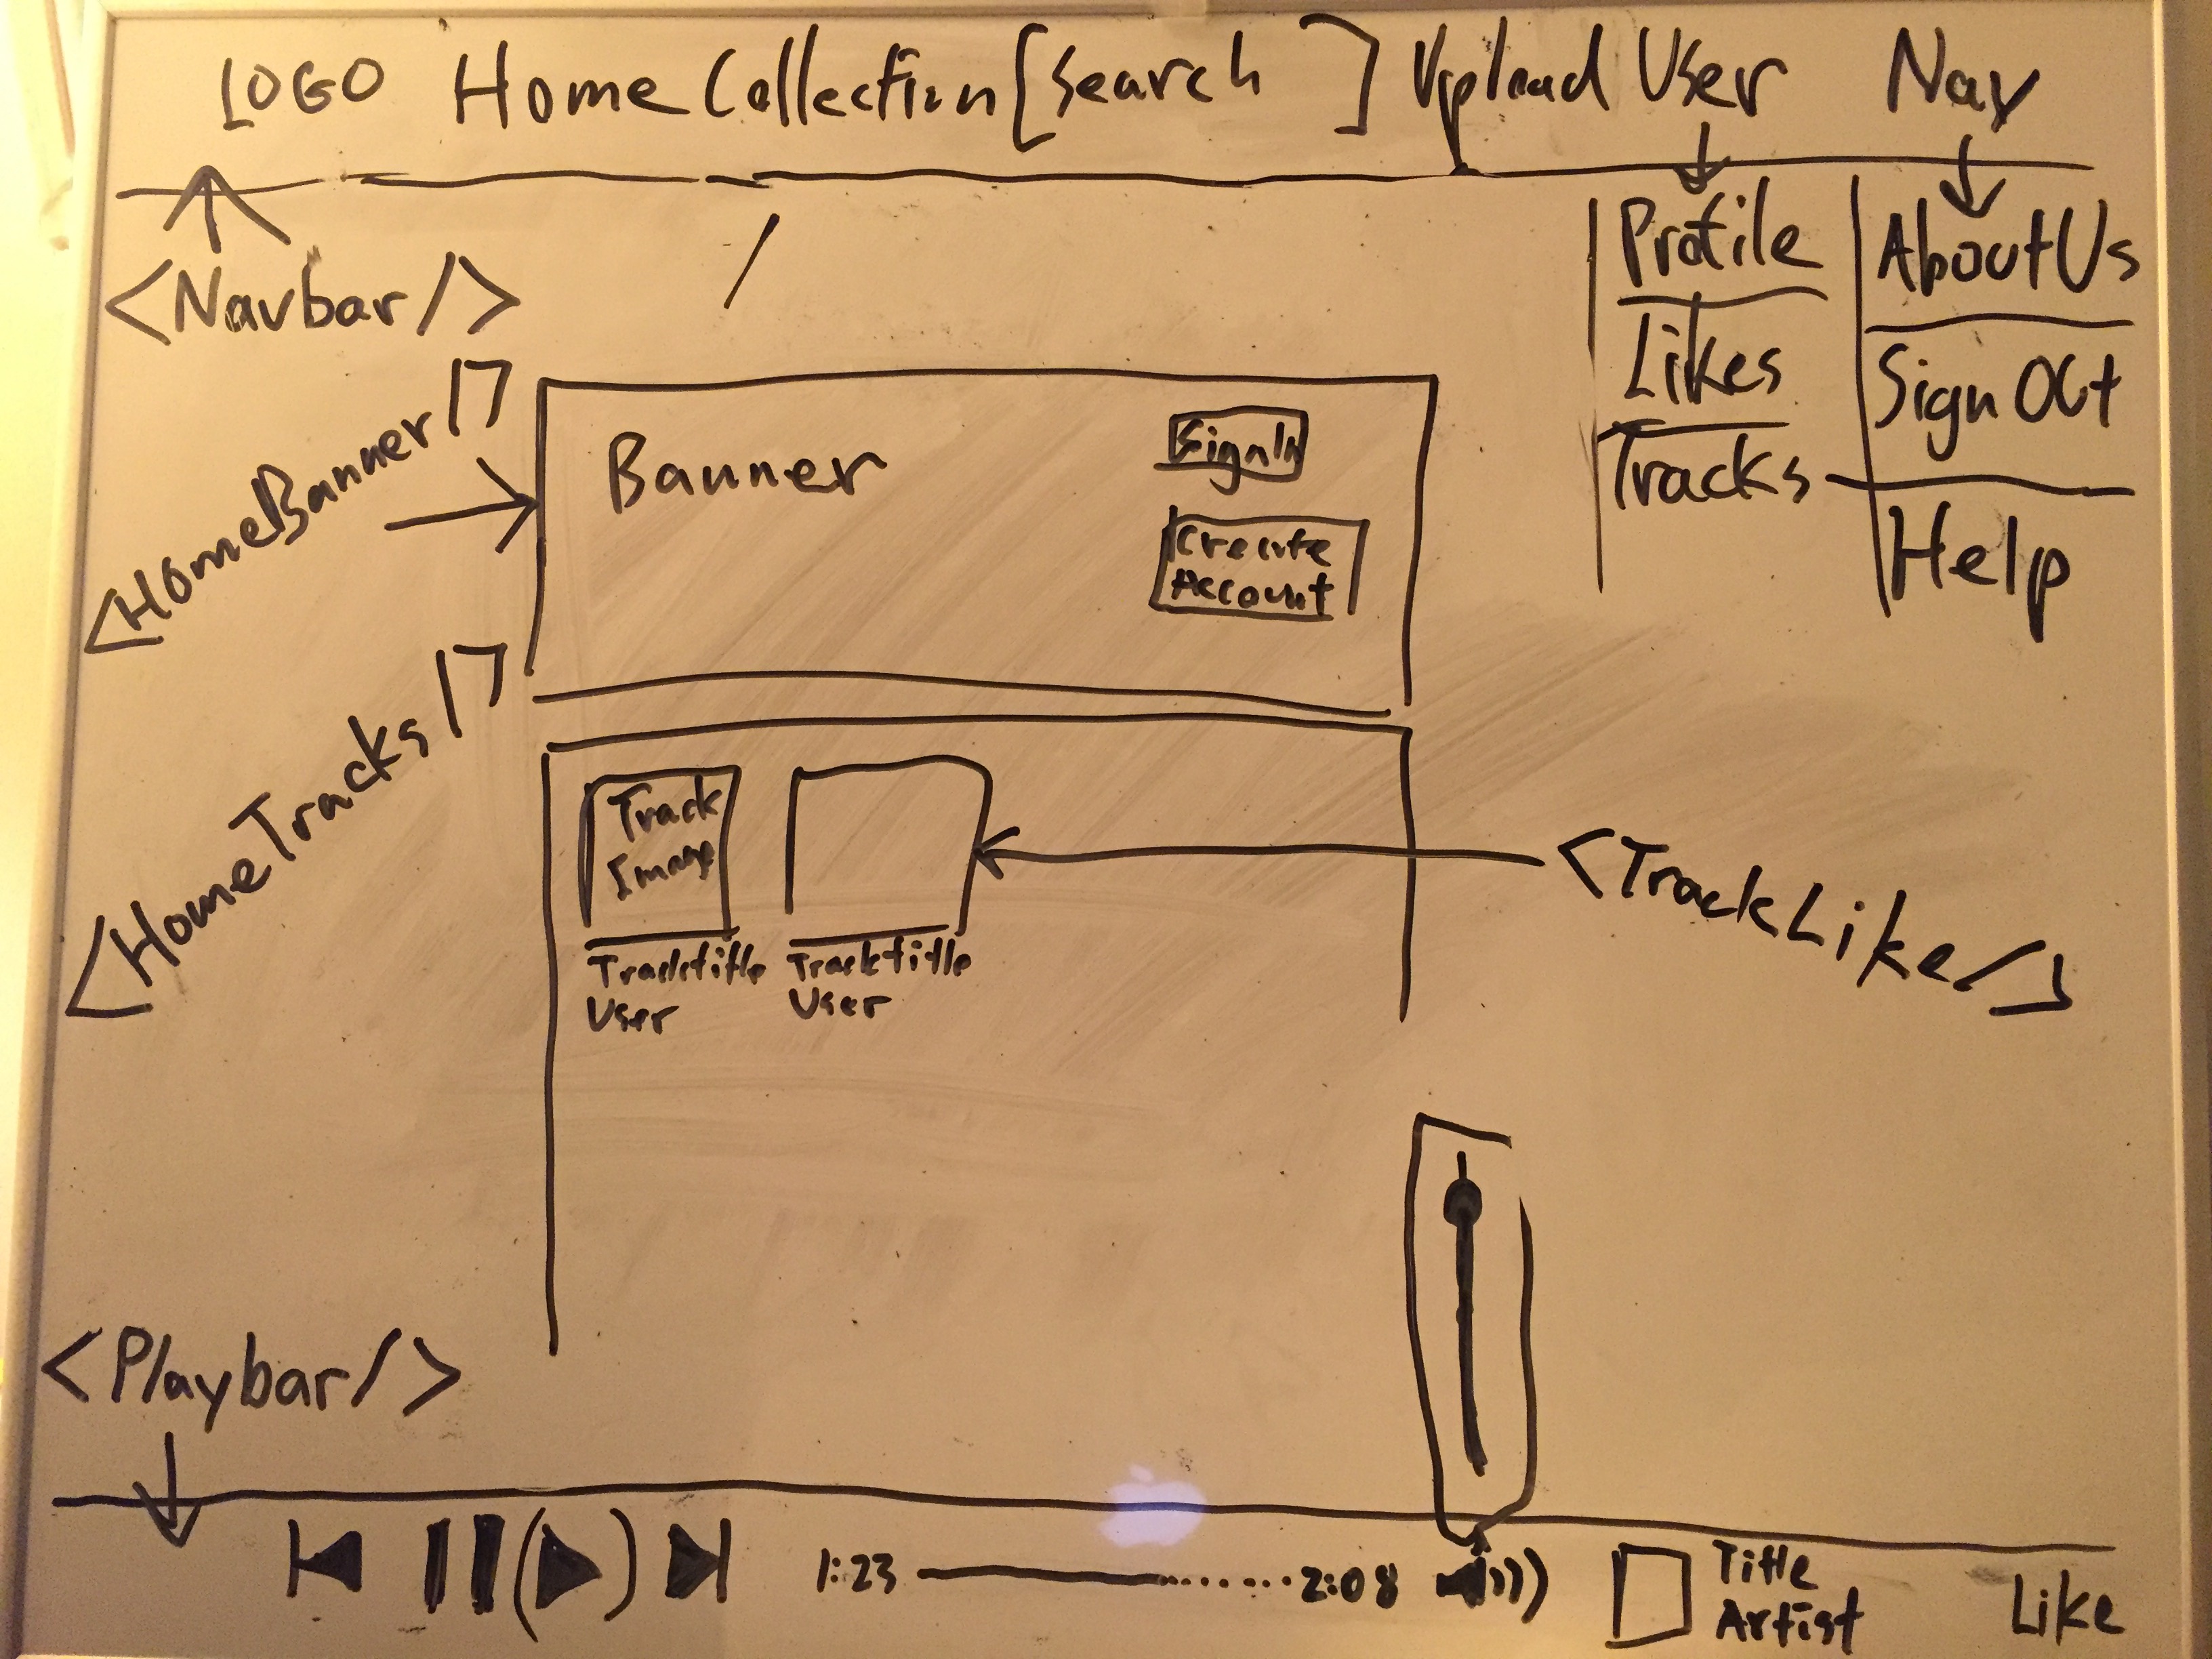 LOGO Home Collection [Search ] Upload User Nav
<Navbar/>
Profile
Likes
Tracks
About Us
Sign Out
Help
<HomeBanner/>
Banner
Sign In
Create
Account
<HomeTracks/>
Track
Image
Tracktitle
User
Tracktitle
User
<TrackLike/>
<Playbar/>
1:23
2:08
Title
Artist
Like